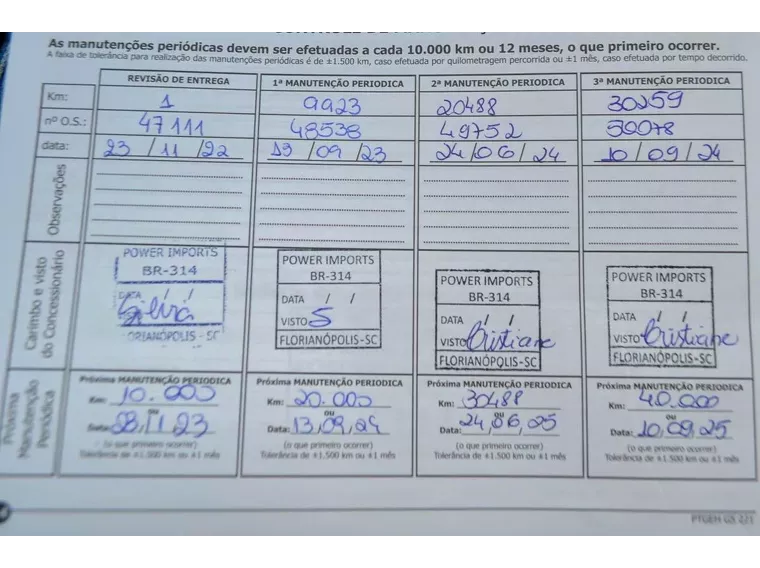 As manutenções periódicas devem ser efetuadas a cada 10.000 km ou 12 meses, o que primeiro ocorrer.
A faixa de tolerância para realização das manutenções periódicas é de ±1.500 km, caso efetuada por quilometragem percorrida ou ±1 mês, caso efetuada por tempo decorrido.
REVISÃO DE ENTREGA 1ª MANUTENÇÃO PERIODICA 2ª MANUTENÇÃO PERIODICA 3ª MANUTENÇÃO PERIODICA
Km: 1 9923 20488 30259
nº O.S.: 47111 48538 49752 50078
data: 23/11/22 13/09/23 24/06/24 10/09/24
Observações
Carimbo e visto do Concessionário
POWER IMPORTS POWER IMPORTS POWER IMPORTS POWER IMPORTS
BR-314 BR-314 BR-314 BR-314
DATA DATA / / DATA / / DATA / /
Silvia VISTO S VISTO Cristiane VISTO Cristiane
FLORIANÓPOLIS-SC FLORIANÓPOLIS-SC FLORIANÓPOLIS-SC
Próxima Manutenção Periódica
Próxima MANUTENÇÃO PERIODICA Próxima MANUTENÇÃO PERIODICA Próxima MANUTENÇÃO PERIODICA Próxima MANUTENÇÃO PERIODICA
Km: 10.000 Km: 20.000 Km: 30488 Km: 40.000
ou ou ou ou
Data: 23.11.23 Data: 13,09,24 Data: 24,06,25 Data: 10,09,25
(o que primeiro ocorrer) (o que primeiro ocorrer) (o que primeiro ocorrer) (o que primeiro ocorrer)
Tolerância de ±1.500 km ou ±1 mês Tolerância de ±1.500 km ou ±1 mês Tolerância de ±1.500 km ou ±1 mês Tolerância de ±1.500 km ou ±1 mês